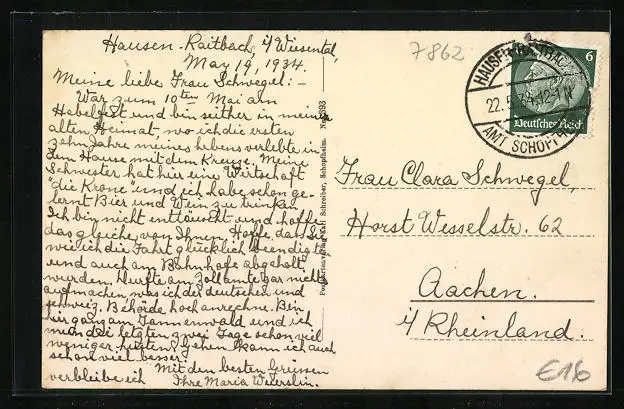 Hausen-Raitbach, i/Wiesental,
May 19, 1934.
Meine liebe Frau Schwegel:-
War zum 10ten Mai am
Hebelfest und bin seither in meiner
alten Heimat, wo ich die ersten
zehn Jahre meines lebens verlebte in
dem Hause mit dem Kreuze. Meine
Schwester hat hier eine Wirtschaft
"die Krone" und ich habe schon ge-
lernt Bier und Wein zu trinken.
Ich bin nicht enttäuscht und hoffe
das gleiche von Ihnen. Hoffe, dass Sie
wie ich die Fahrt glücklich beendigten
und auch am Bahnhofe abgeholt
wurden. Durfte am Zollamte gar nichts
aufmachen was ich der deutschen und
schweiz. Behörde hoch anrechne. Bin
hier ganz am Tannenwald und ich
die letzten zwei Tage schon viel
weniger husten. Gehen kann ich auch
schon viel besser.
Mit den besten Grüssen
verbleibe ich
Ihre Maria
7862
HAUSEN-RAITBACH
22.5.
AMT SCHOPFHEIM
6
Deutsches Reich
Karl Schreiber, Schopfheim.
Frau Clara Schwegel,
Horst Wesselstr. 62
Aachen.
i/Rheinland.
E16